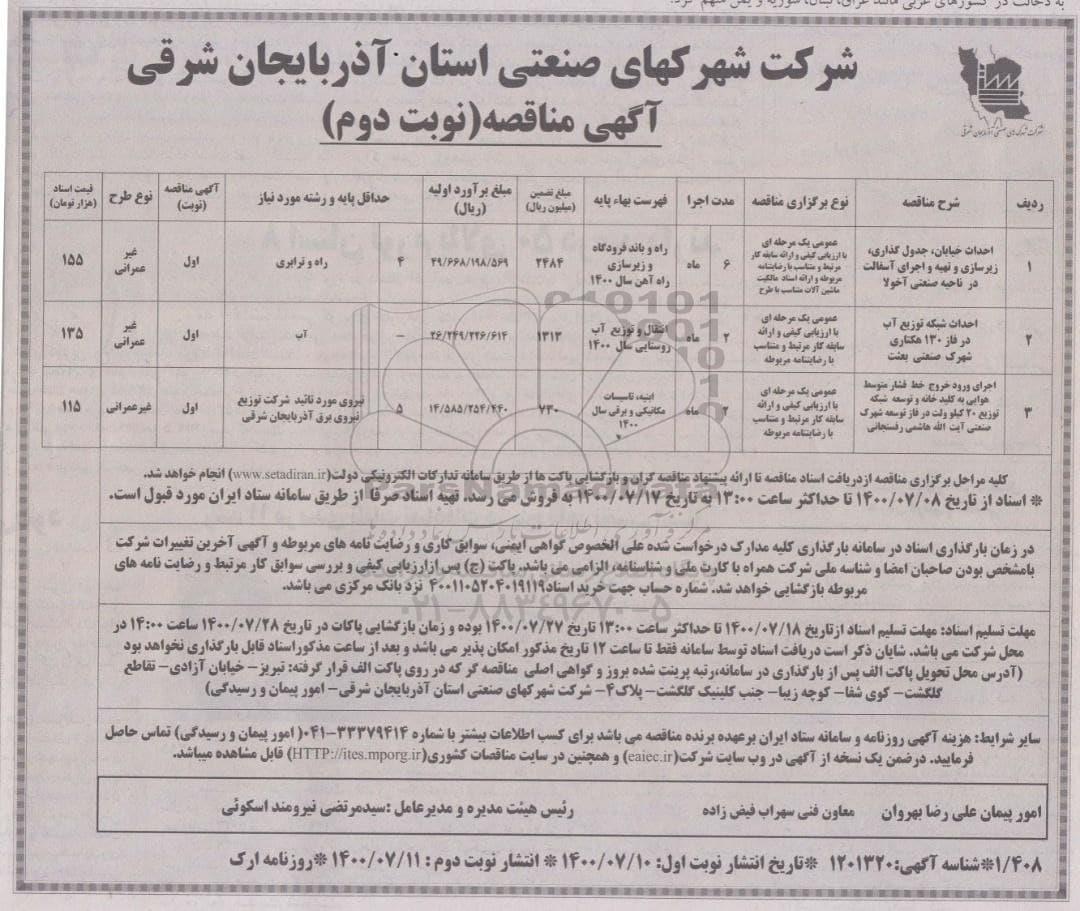 شرکت شهرکهای صنعتی استان آذربایجان شرقی
آگهی مناقصه(نوبت دوم)
شرکت شهرک های صنعتی آذربایجان شرقی
ردیف شرح مناقصه نوع برگزاری مناقصه مدت اجرا فهرست بهاء پایه مبلغ تضمین (میلیون ریال) مبلغ برآورد اولیه (ریال) حداقل پایه و رشته مورد نیاز آگهی مناقصه (نوبت) نوع طرح قیمت اسناد (هزار تومان)
۱ احداث خیابان، جدول گذاری، زیرسازی و تهیه و اجرای آسفالت در ناحیه صنعتی آخولا عمومی یک مرحله ای با ارزیابی کیفی و ارائه سابقه کار مرتبط و متناسب با رضایتنامه مربوطه و ارائه اسناد مالکیت ماشین آلات متناسب با طرح ۶ ماه راه و باند فرودگاه و زیرسازی راه آهن سال ۱۴۰۰ ۲۴۸۴ ۴۹/۶۶۸/۱۹۸/۵۶۹ ۴ راه و ترابری اول غیر عمرانی ۱۵۵
۲ احداث شبکه توزیع آب در فاز ۱۳۰ هکتاری شهرک صنعتی بعثت عمومی یک مرحله ای با ارزیابی کیفی و ارائه سابقه کار مرتبط و متناسب با رضایتنامه مربوطه ۲ ماه انتقال و توزیع آب روستایی سال ۱۴۰۰ ۱۳۱۳ ۲۶/۲۴۹/۲۲۶/۶۱۴ – آب اول غیر عمرانی ۱۳۵
۳ اجرای ورود خروج خط فشار متوسط هوایی به کلید خانه و توسعه شبکه توزیع ۲۰ کیلو ولت در فاز توسعه شهرک صنعتی آیت الله هاشمی رفسنجانی عمومی یک مرحله ای با ارزیابی کیفی و ارائه سابقه کار مرتبط و متناسب با رضایتنامه مربوطه ۲ ماه ابنیه، تاسیسات مکانیکی و برقی سال ۱۴۰۰ ۷۳۰ ۱۴/۵۸۵/۲۵۴/۴۴۰ ۵ نیروی مورد تائید شرکت توزیع نیروی برق آذربایجان شرقی اول غیرعمرانی ۱۱۵
کلیه مراحل برگزاری مناقصه ازدریافت اسناد مناقصه تا ارائه پیشنهاد مناقصه گران و بازگشایی پاکت ها از طریق سامانه تدارکات الکترونیکی دولت(www.setadiran.ir) انجام خواهد شد.
* اسناد از تاریخ ۱۴۰۰/۰۷/۰۸ تا حداکثر ساعت ۱۳:۰۰ به تاریخ ۱۴۰۰/۰۷/۱۷ به فروش می رسد. تهیه اسناد صرفا از طریق سامانه ستاد ایران مورد قبول است.
در زمان بارگذاری اسناد در سامانه بارگذاری کلیه مدارک درخواست شده علی الخصوص گواهی ایمنی، سوابق کاری و رضایت نامه های مربوطه و آگهی آخرین تغییرات شرکت
بامشخص بودن صاحبان امضا و شناسه ملی شرکت همراه با کارت ملی و شناسنامه، الزامی می باشد. پاکت (ج) پس ازارزیابی کیفی و بررسی سوابق کار مرتبط و رضایت نامه های
مربوطه بازگشایی خواهد شد. شماره حساب جهت خرید اسناد۴۰۰۱۱۰۵۲۰۴۰۱۹۱۱۹ نزد بانک مرکزی می باشد.
مهلت تسلیم اسناد: مهلت تسلیم اسناد ازتاریخ ۱۴۰۰/۰۷/۱۸ تا حداکثر ساعت ۱۳:۰۰ تاریخ ۱۴۰۰/۰۷/۲۷ بوده و زمان بازگشایی پاکات در تاریخ ۱۴۰۰/۰۷/۲۸ ساعت ۱۴:۰۰ در
محل شرکت می باشد. شایان ذکر است دریافت اسناد توسط سامانه فقط تا ساعت ۱۲ تاریخ مذکور امکان پذیر می باشد و بعد از ساعت مذکوراسناد قابل بارگذاری نخواهد بود
(آدرس محل تحویل پاکت الف پس از بارگذاری در سامانه،رتبه پرینت شده بروز و گواهی اصلی مناقصه گر که در روی پاکت الف قرار گرفته: تبریز– خیابان آزادی– تقاطع
گلگشت– کوی شفا– کوچه زیبا– جنب کلینیک گلگشت– پلاک۴– شرکت شهرکهای صنعتی استان آذربایجان شرقی– امور پیمان و رسیدگی)
سایر شرایط: هزینه آگهی روزنامه و سامانه ستاد ایران برعهده برنده مناقصه می باشد برای کسب اطلاعات بیشتر با شماره ۳۳۳۷۹۴۱۴–۰۴۱( امور پیمان و رسیدگی) تماس حاصل
فرمایید. درضمن یک نسخه از آگهی در وب سایت شرکت(eaiec.ir) و همچنین در سایت مناقصات کشوری(HTTP://ites.mporg.ir) قابل مشاهده میباشد.
امور پیمان علی رضا بهروان معاون فنی سهراب فیض زاده رئیس هیئت مدیره و مدیرعامل :سیدمرتضی نیرومند اسکوئی
۱/۴۰۸*شناسه آگهی:۱۲۰۱۳۲۰ *تاریخ انتشار نوبت اول: ۱۴۰۰/۰۷/۱۰ * انتشار نوبت دوم : ۱۴۰۰/۰۷/۱۱ *روزنامه ارک
۰۲۱–۸۸۳۴۹۶۷۰–۵